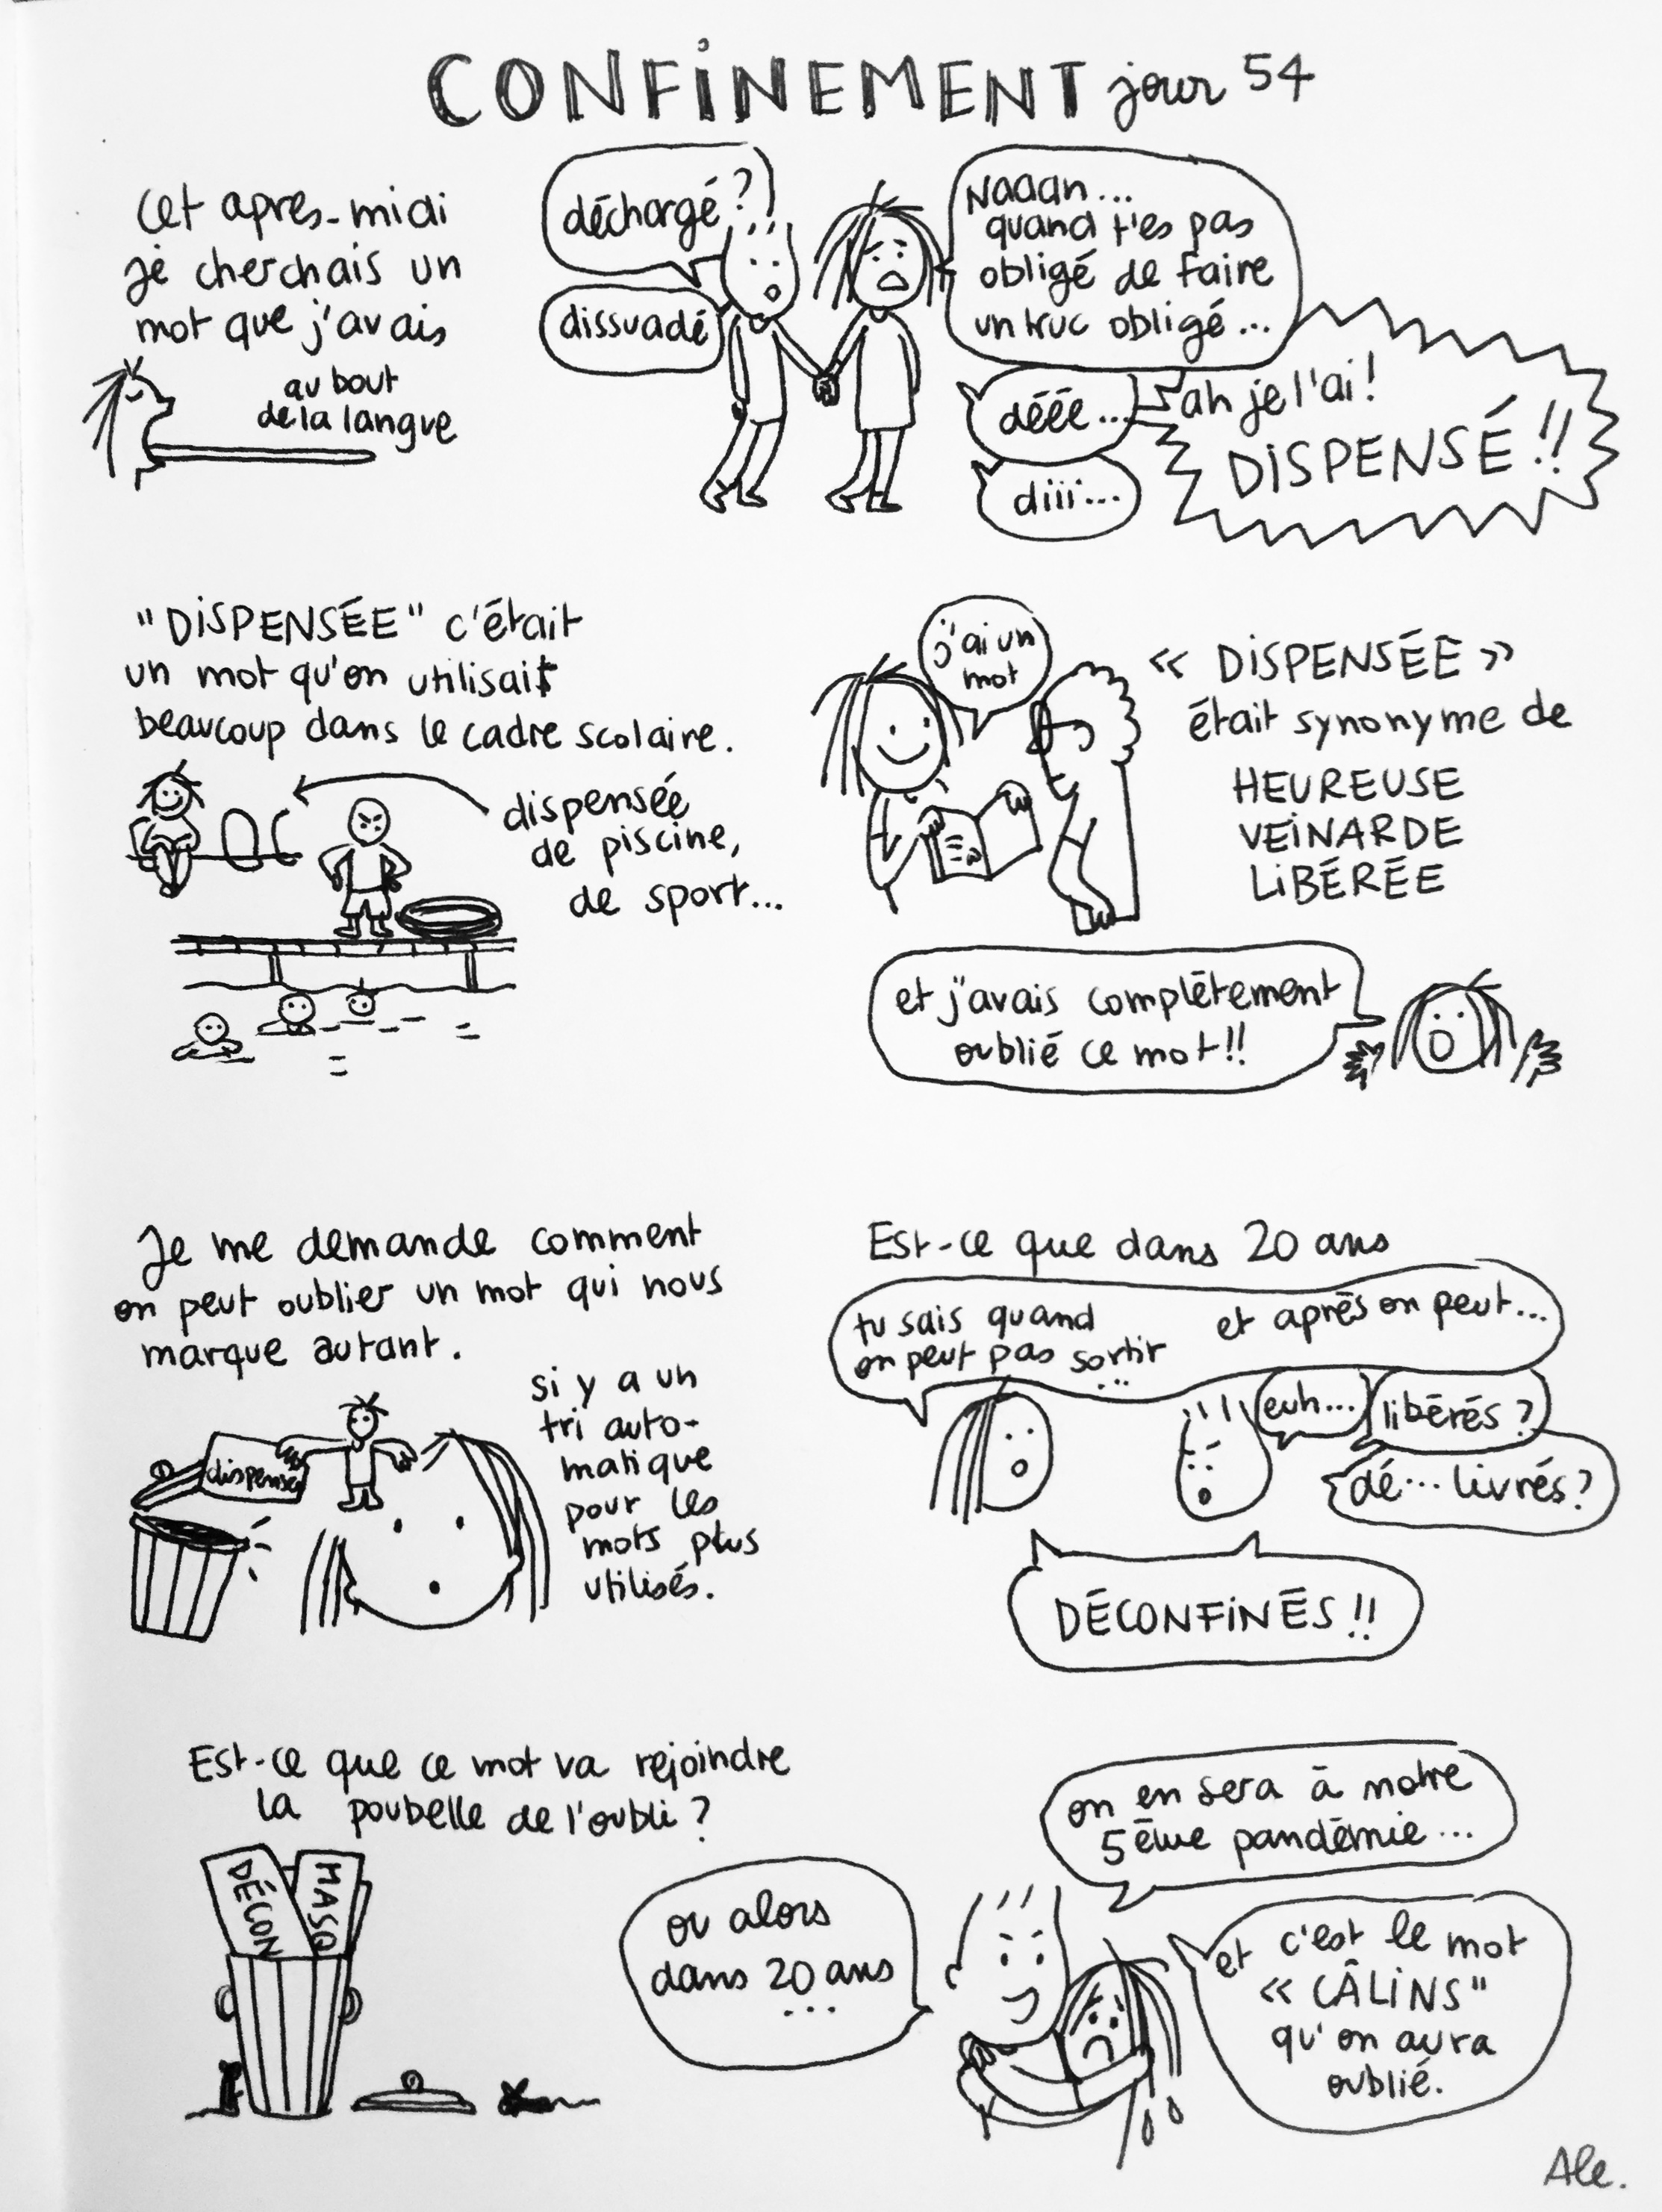 CONFiNEMENT jour 54
Cet après-midi
je cherchais un
mot que j'avais
au bout
de la langue
déchargé ?
dissuadé
Naaan...
quand t'es pas
obligé de faire
un truc obligé...
dééé...
diii...
ah je l'ai !
DiSPENSÉ !!
"DiSPENSÉE" c'était
un mot qu'on utilisait
beaucoup dans le cadre scolaire.
dispensée
de piscine,
de sport...
j'ai un
mot
« DiSPENSÉE »
était synonyme de
HEUREUSE
VEiNARDE
LiBÉRÉE
et j'avais complètement
oublié ce mot !!
Je me demande comment
on peut oublier un mot qui nous
marque autant.
dispensé
si y a un
tri auto-
matique
pour les
mots plus
utilisés.
Est-ce que dans 20 ans
tu sais quand
on peut pas sortir
...
et après on peut...
euh...
libérés ?
dé... livrés ?
DÉCONFiNÉS !!
Est-ce que ce mot va rejoindre
la poubelle de l'oubli ?
DÉCON
MASQ
ou alors
dans 20 ans
...
on en sera à notre
5ème pandémie...
et c'est le mot
« CÂLiNS"
qu'on aura
oublié.
Ale.